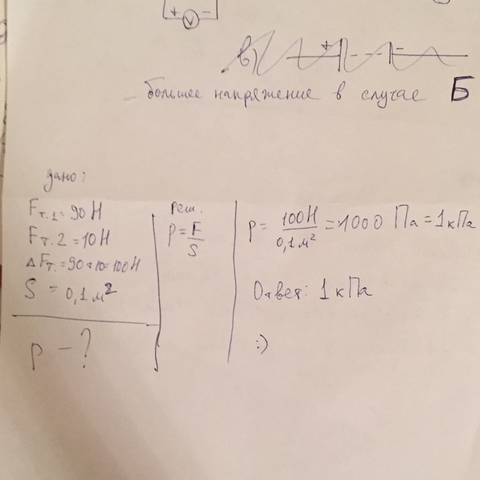 + V -
в) + -
- большее напряжение в случае Б
дано:
Fт.1 = 90 Н
Fт.2 = 10Н
ΔFт. = 90+10=100Н
S = 0,1 м²
p - ?
Реш.
p = F/S
p = 100Н/0,1м² = 1000 Па = 1 кПа
Ответ: 1 кПа
:)